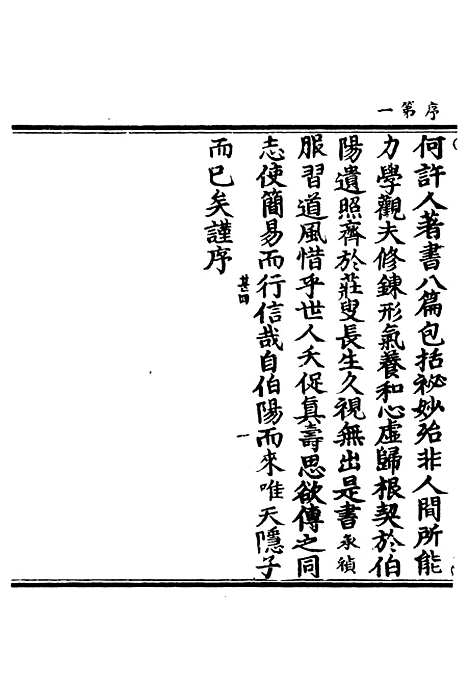 序第一
何許人著書八篇包括祕妙殆非人間所能
力學觀夫修鍊形氣養和心虛歸根契於伯
陽遺照齊於莊叟長生久視無出是書承禎
服習道風惜乎世人夭促真壽思欲傳之同
志使簡易而行信哉自伯陽而來唯天隱子
而已矣謹序
甚四
一